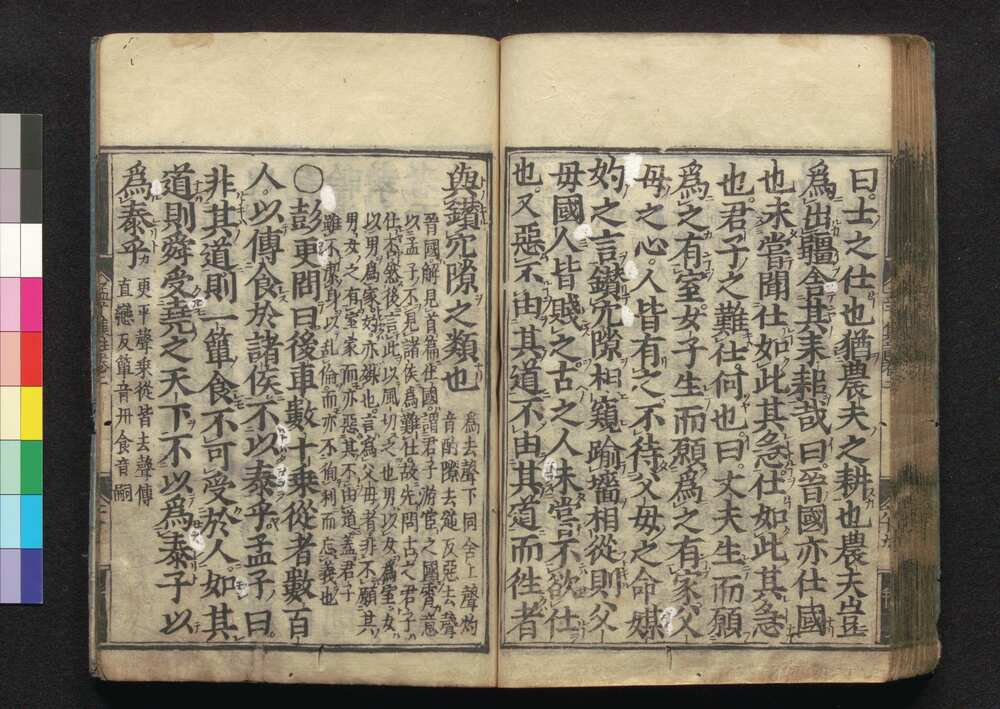 曰士之仕也猶農夫之耕也農夫豈
爲出疆舍其耒耜哉曰晉國亦仕國
也未嘗聞仕如此其急仕如此其急
也君子之難仕何也曰丈夫生而願
爲之有室女子生而願爲之有家父
母之心人皆有之不待父母之命媒
妁之言鑽穴隙相窺踰牆相從則父
母國人皆賤之古之人未嘗不欲仕
也又惡不由其道不由其道而徃者
與鑽穴隙之類也
爲去聲下同舍上聲妁
音酌隙去逆反惡去聲
晉國解見首篇仕國謂君子游宦之國霄意
以孟子不見諸侯爲難仕故先問古之君子
仕否然後言此以風切之也男以女爲室女
以男爲家妁亦媒也言爲父母者非不願其
男女之有室家而亦惡其不由道蓋君子
雖不潔身以乱倫而亦不徇利而忘義也
○彭更問曰後車數十乘從者數百
人以傳食於諸侯不以泰乎孟子曰
非其道則一簞食不可受於人如其
道則舜受堯之天下不以爲泰子以
爲泰乎
更平聲乘從皆去聲傳
直戀反簞音丹食音嗣